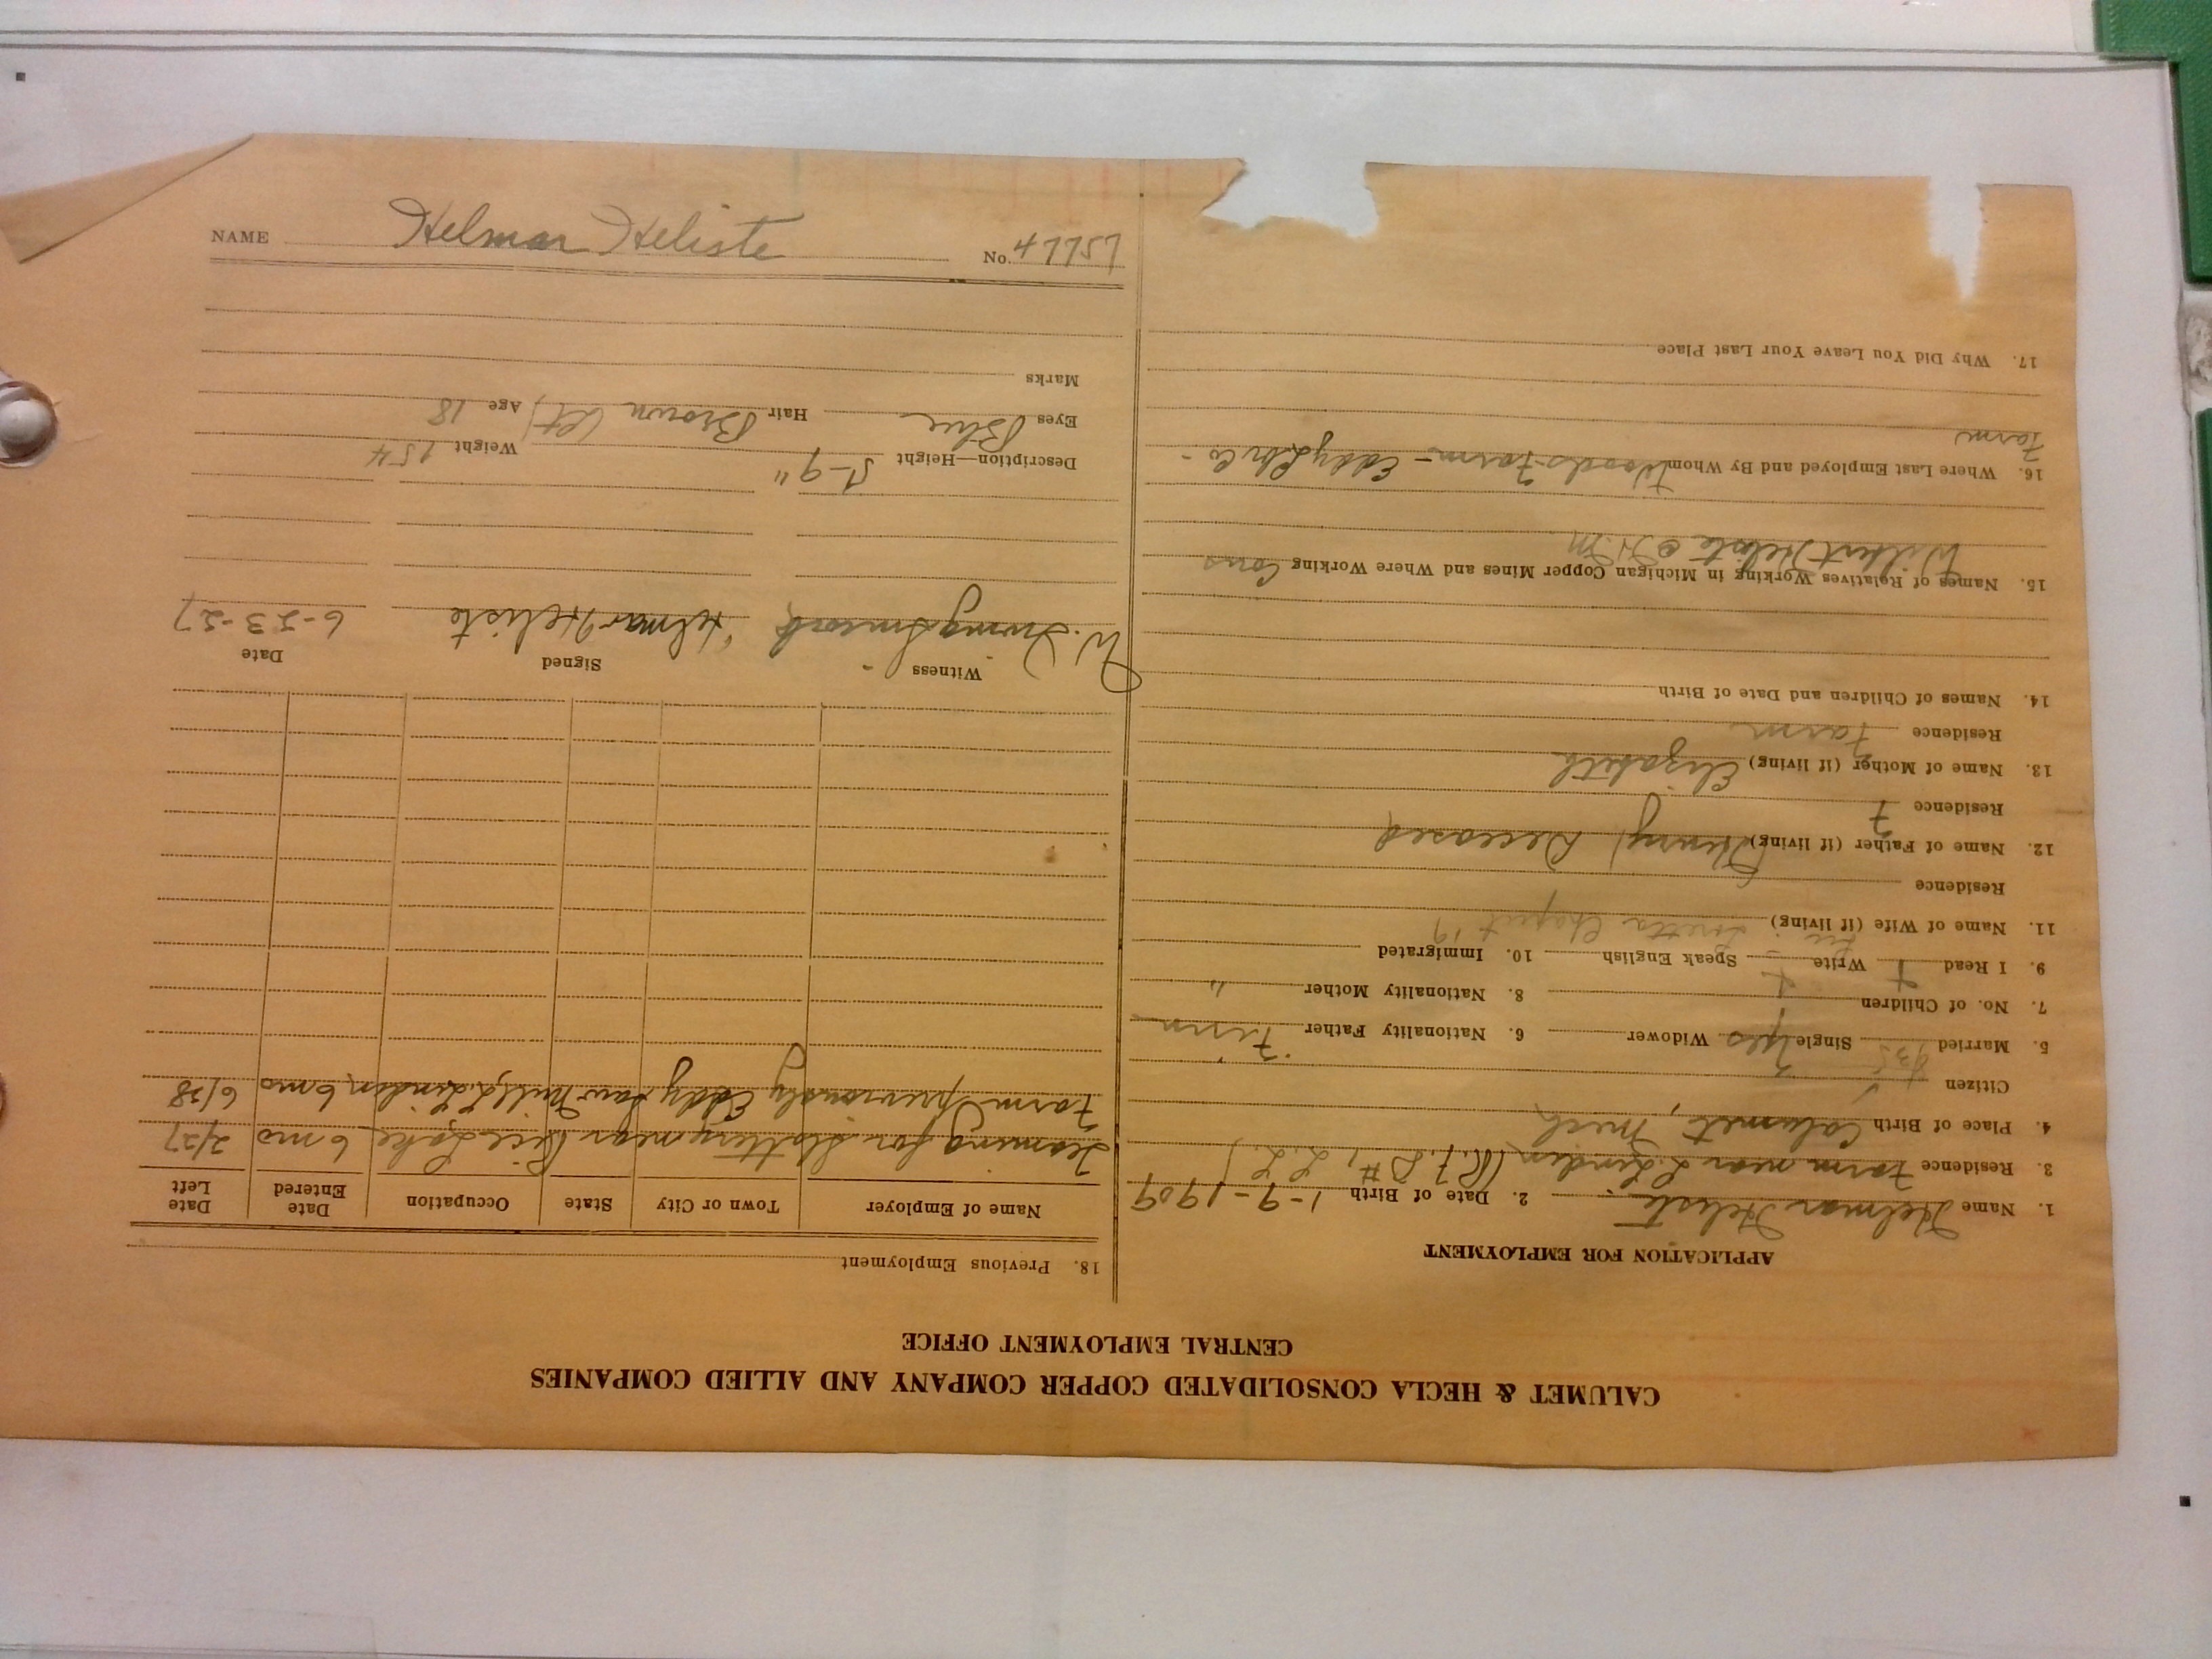 CALUMET & HECLA CONSOLIDATED COPPER COMPANY AND ALLIED COMPANIES
CENTRAL EMPLOYMENT OFFICE
APPLICATION FOR EMPLOYMENT
1. Name Helmar Heliste 2. Date of Birth 1-9-1909
3. Residence Farm near L. Linden (R.F.D #1, L.L.)
4. Place of Birth Calumet, Mich
Citizen
5. Married Single Yes Widower 6. Nationality Father Finn
7. No. of Children 8. Nationality Mother "
9. I Read Write Speak English 10. Immigrated
11. Name of Wife (if living) Loretta
Residence
12. Name of Father (if living) (Henry) Deceased
Residence
13. Name of Mother (if living) Elizabeth
Residence Farm
14. Names of Children and Date of Birth
15. Names of Relatives Working in Michigan Copper Mines and Where Working Cons
Wilbert Heliste
16. Where Last Employed and By Whom Woods-Farm - Eddy Lbr Co -
Farm
17. Why Did You Leave Your Last Place
18. Previous Employment
Name of Employer Town or City State Occupation Date Entered Date Left
Teaming for Slattery near Rice Lake 6 mo 2/27
Farm previously Eddy Saw Mill, L. Linden, 6 mo
Witness Signed Date
W. Irving Helmar Heliste 6-23-27
Description—Height 5-9" Weight 154
Eyes Blue Hair Brown (lt) Age 18
Marks
NAME Helmar Heliste No. 47757